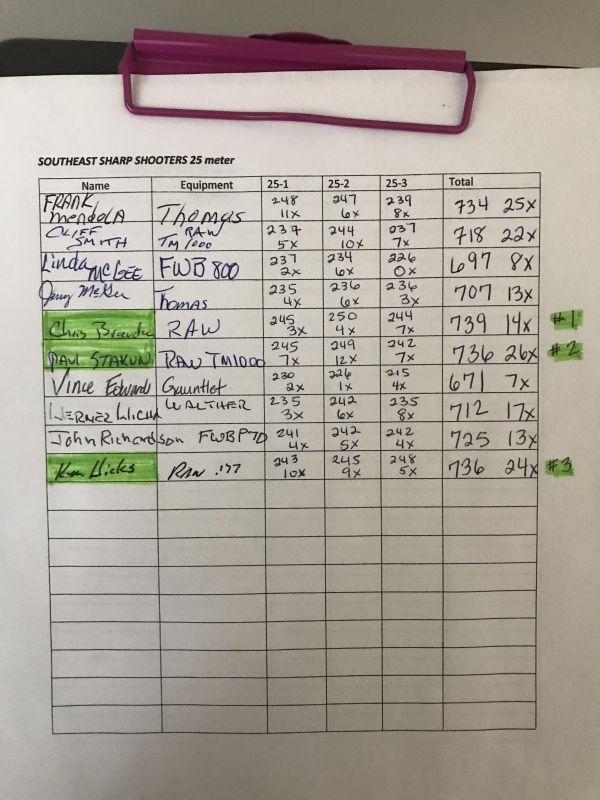 SOUTHEAST SHARP SHOOTERS 25 meter
Name Equipment 25-1 25-2 25-3 Total
FRANK MENDOLA Thomas 248 11x 247 6x 239 8x 734 25x
CLIFF SMITH RAW TM 1000 237 5x 244 10x 237 7x 718 22x
Linda McGEE FWB 800 237 2x 234 6x 226 0x 697 8x
Jerry McGee Thomas 235 4x 236 6x 236 3x 707 13x
Chris RAW 245 3x 250 4x 244 7x 739 14x #1
PAUL STAKUN RAW TM1000 245 7x 249 12x 242 7x 736 26x #2
Vince Edward Gauntlet 230 2x 226 1x 215 4x 671 7x
WERNER WALTHER 235 3x 242 6x 235 8x 712 17x
John Richardson FWB P70 241 4x 242 5x 242 4x 725 13x
Ken Hicks RAW .177 243 10x 245 9x 248 5x 736 24x #3